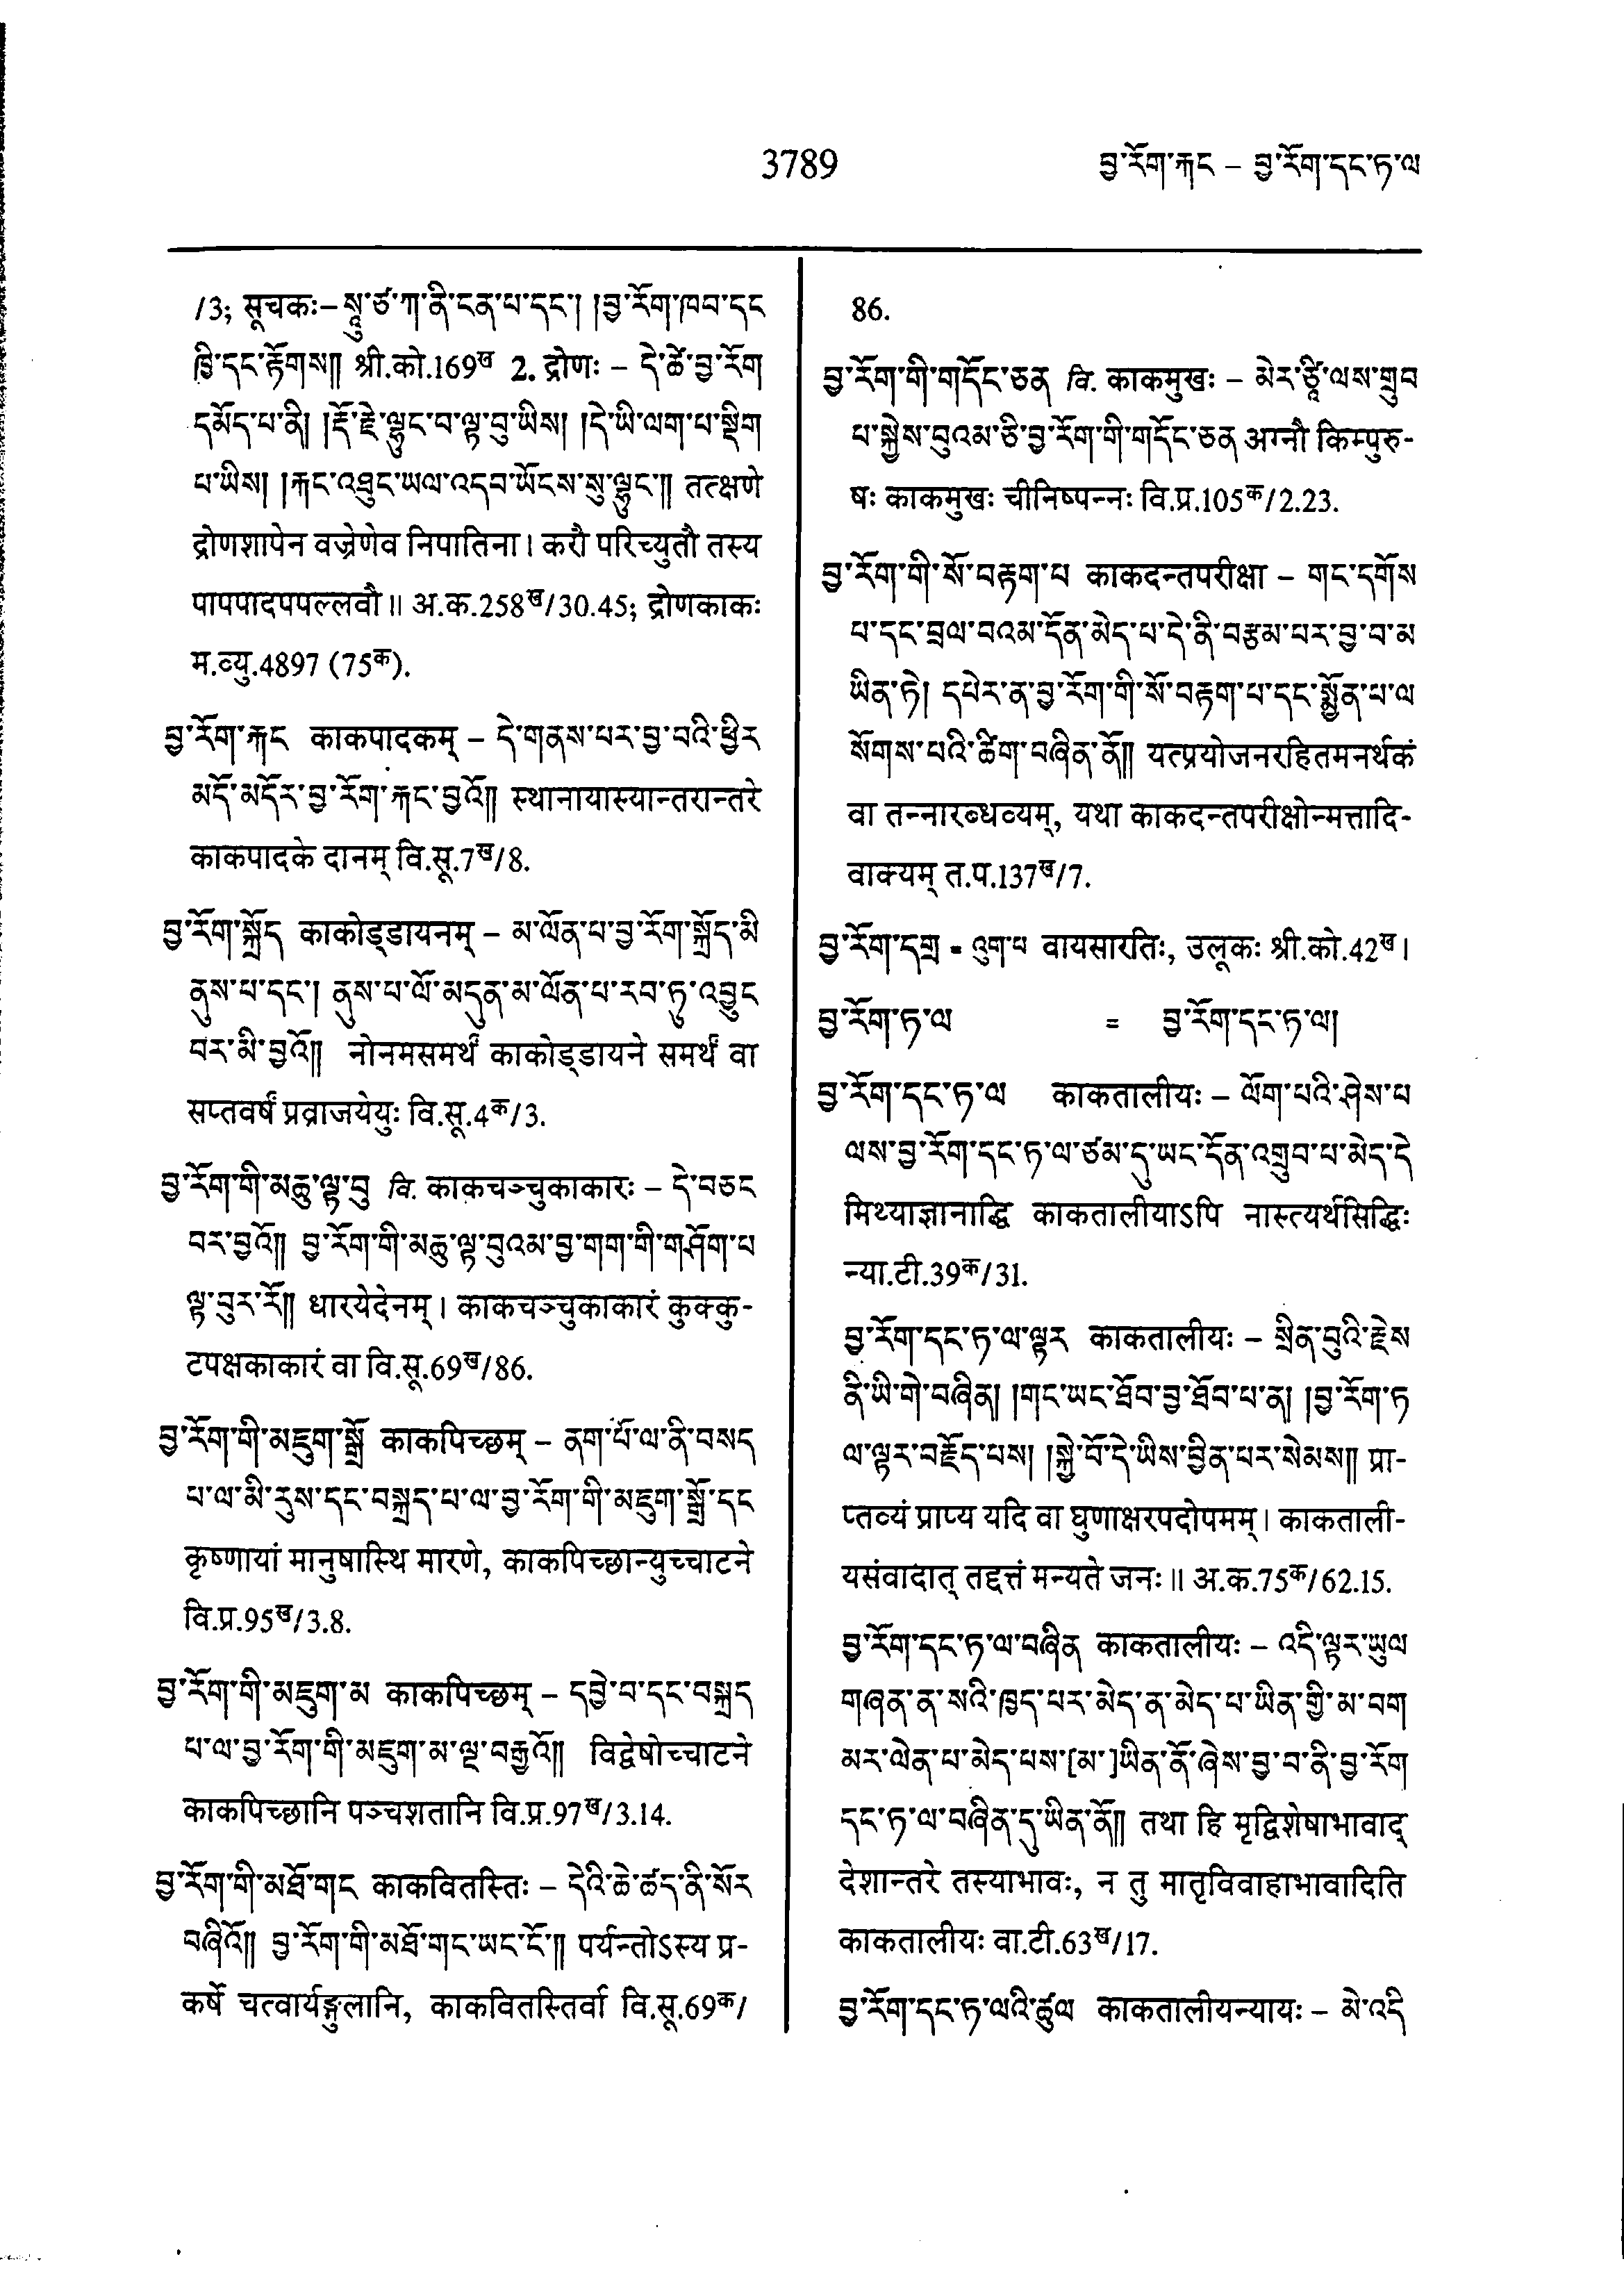 3789
བྱ་རོག་རྐང – བྱ་རོག་དང་ཏ་ལ
/3; सूचकः– སཱུ་ཙ་ཀ་ནི་ངན་པ་དང་། །བྱ་རོག་ཁབ་དང
ཁྱི་དང་རྟོགས།། श्री.को.169ख 2. द्रोणः – དེ་ཚེ་བྱ་རོག
དམོད་པ་ནི། །རྡོ་རྗེ་ལྷུང་བ་ལྟ་བུ་ཡིས། །དེ་ཡི་ལག་པ་སྡིག
པ་ཡིས། །རྐང་འཐུང་ཡལ་འདབ་ཡོངས་སུ་ལྷུང་།། तत्क्षणे
द्रोणशापेन वज्रेणेव निपातिना। करौ परिच्युतौ तस्य
पापपादपपल्लवौ॥ अ.क.258ख/30.45; द्रोणकाकः
म.व्यु.4897 (75क).
བྱ་རོག་རྐང काकपादकम् – དེ་གནས་པར་བྱ་བའི་ཕྱིར
མདོ་མདོར་བྱ་རོག་རྐང་བྱའོ།། स्थानायास्यान्तरान्तरे
काकपादके दानम् वि.सू.7ख/8.
བྱ་རོག་སྐྲོད काकोड्डायनम् – མ་ལོན་པ་བྱ་རོག་སྐྲོད་མི
ནུས་པ་དང་། ནུས་པ་ལོ་མདུན་མ་ལོན་པ་རབ་ཏུ་འབྱུང
བར་མི་བྱའོ།། नोनमसमर्थं काकोड्डायने समर्थं वा
सप्तवर्षं प्रव्राजयेयुः वि.सू.4क/3.
བྱ་རོག་གི་མཆུ་ལྟ་བུ वि. काकचञ्चुकाकारः – དེ་བཅང
བར་བྱའོ།། བྱ་རོག་གི་མཆུ་ལྟ་བུའམ་བྱ་གག་གི་གཤོག་པ
ལྟ་བུར་རོ།། धारयेदेनम्। काकचञ्चुकाकारं कुक्कु-
टपक्षकाकारं वा वि.सू.69ख/86.
བྱ་རོག་གི་མཇུག་སྒྲོ काकपिच्छम् – ནག་པོ་ལ་ནི་བསད
པ་ལ་མི་རུས་དང་བསྐྲད་པ་ལ་བྱ་རོག་གི་མཇུག་སྒྲོ་དང
कृष्णायां मानुषास्थि मारणे, काकपिच्छान्युच्चाटने
वि.प्र.95ख/3.8.
བྱ་རོག་གི་མཇུག་མ काकपिच्छम् – དབྱེ་བ་དང་བསྐྲད
པ་ལ་བྱ་རོག་གི་མཇུག་མ་ལྔ་བརྒྱའོ།། विद्वेषोच्चाटने
काकपिच्छानि पञ्चशतानि वि.प्र.97ख/3.14.
བྱ་རོག་གི་མཐོ་གང काकवितस्तिः – དེའི་ཆེ་ཚད་ནི་སོར
བཞིའོ།། བྱ་རོག་གི་མཐོ་གང་ཡང་ངོ་།། पर्यन्तोऽस्य प्र-
कर्षे चत्वार्यङ्गुलानि, काकवितस्तिर्वा वि.सू.69क/
86.
བྱ་རོག་གི་གདོང་ཅན वि. काकमुखः – མེར་ཙཱི་ལས་གྲུབ
པ་སྐྱེས་བུའམ་ཅི་བྱ་རོག་གི་གདོང་ཅན अग्नौ किम्पुरु-
षः काकमुखः चीनिष्पन्नः वि.प्र.105क/2.23.
བྱ་རོག་གི་སོ་བརྟག་པ काकदन्तपरीक्षा – གང་དགོས
པ་དང་བྲལ་བའམ་དོན་མེད་པ་དེ་ནི་བརྩམ་པར་བྱ་བ་མ
ཡིན་ཏེ། དཔེར་ན་བྱ་རོག་གི་སོ་བརྟག་པ་དང་སྨྱོན་པ་ལ
སོགས་པའི་ཚིག་བཞིན་ནོ།། यत्प्रयोजनरहितमनर्थकं
वा तन्नारब्धव्यम्, यथा काकदन्तपरीक्षोन्मत्तादि-
वाक्यम् त.प.137ख/7.
བྱ་རོག་དགྲ = འུག་པ वायसारतिः, उलूकः श्री.को.42ख।
བྱ་རོག་ཏ་ལ = བྱ་རོག་དང་ཏ་ལ།
བྱ་རོག་དང་ཏ་ལ काकतालीयः – ལོག་པའི་ཤེས་པ
ལས་བྱ་རོག་དང་ཏ་ལ་ཙམ་དུ་ཡང་དོན་འགྲུབ་པ་མེད་དེ
मिथ्याज्ञानाद्धि काकतालीयाऽपि नास्त्यर्थसिद्धिः
न्या.टी.39क/31.
བྱ་རོག་དང་ཏ་ལ་ལྟར काकतालीयः – སྲིན་བུའི་རྗེས
ནི་ཡི་གེ་བཞིན། །གང་ཡང་ཐོབ་བྱ་ཐོབ་པ་ན། །བྱ་རོག་ཏ
ལ་ལྟར་བརྗོད་པས། །སྐྱེ་བོ་དེ་ཡིས་བྱིན་པར་སེམས།། प्रा-
प्तव्यं प्राप्य यदि वा घुणाक्षरपदोपमम्। काकताली-
यसंवादात् तद्दत्तं मन्यते जनः॥ अ.क.75क/62.15.
བྱ་རོག་དང་ཏ་ལ་བཞིན काकतालीयः – འདི་ལྟར་ཡུལ
གཞན་ན་སའི་ཁྱད་པར་མེད་ན་མེད་པ་ཡིན་གྱི་མ་བག
མར་ལེན་པ་མེད་པས་[མ་]ཡིན་ནོ་ཞེས་བྱ་བ་ནི་བྱ་རོག
དང་ཏ་ལ་བཞིན་དུ་ཡིན་ནོ།། तथा हि मृद्विशेषाभावाद्
देशान्तरे तस्याभावः, न तु मातृविवाहाभावादिति
काकतालीयः वा.टी.63ख/17.
བྱ་རོག་དང་ཏ་ལའི་ཚུལ काकतालीयन्यायः – མེ་འདི